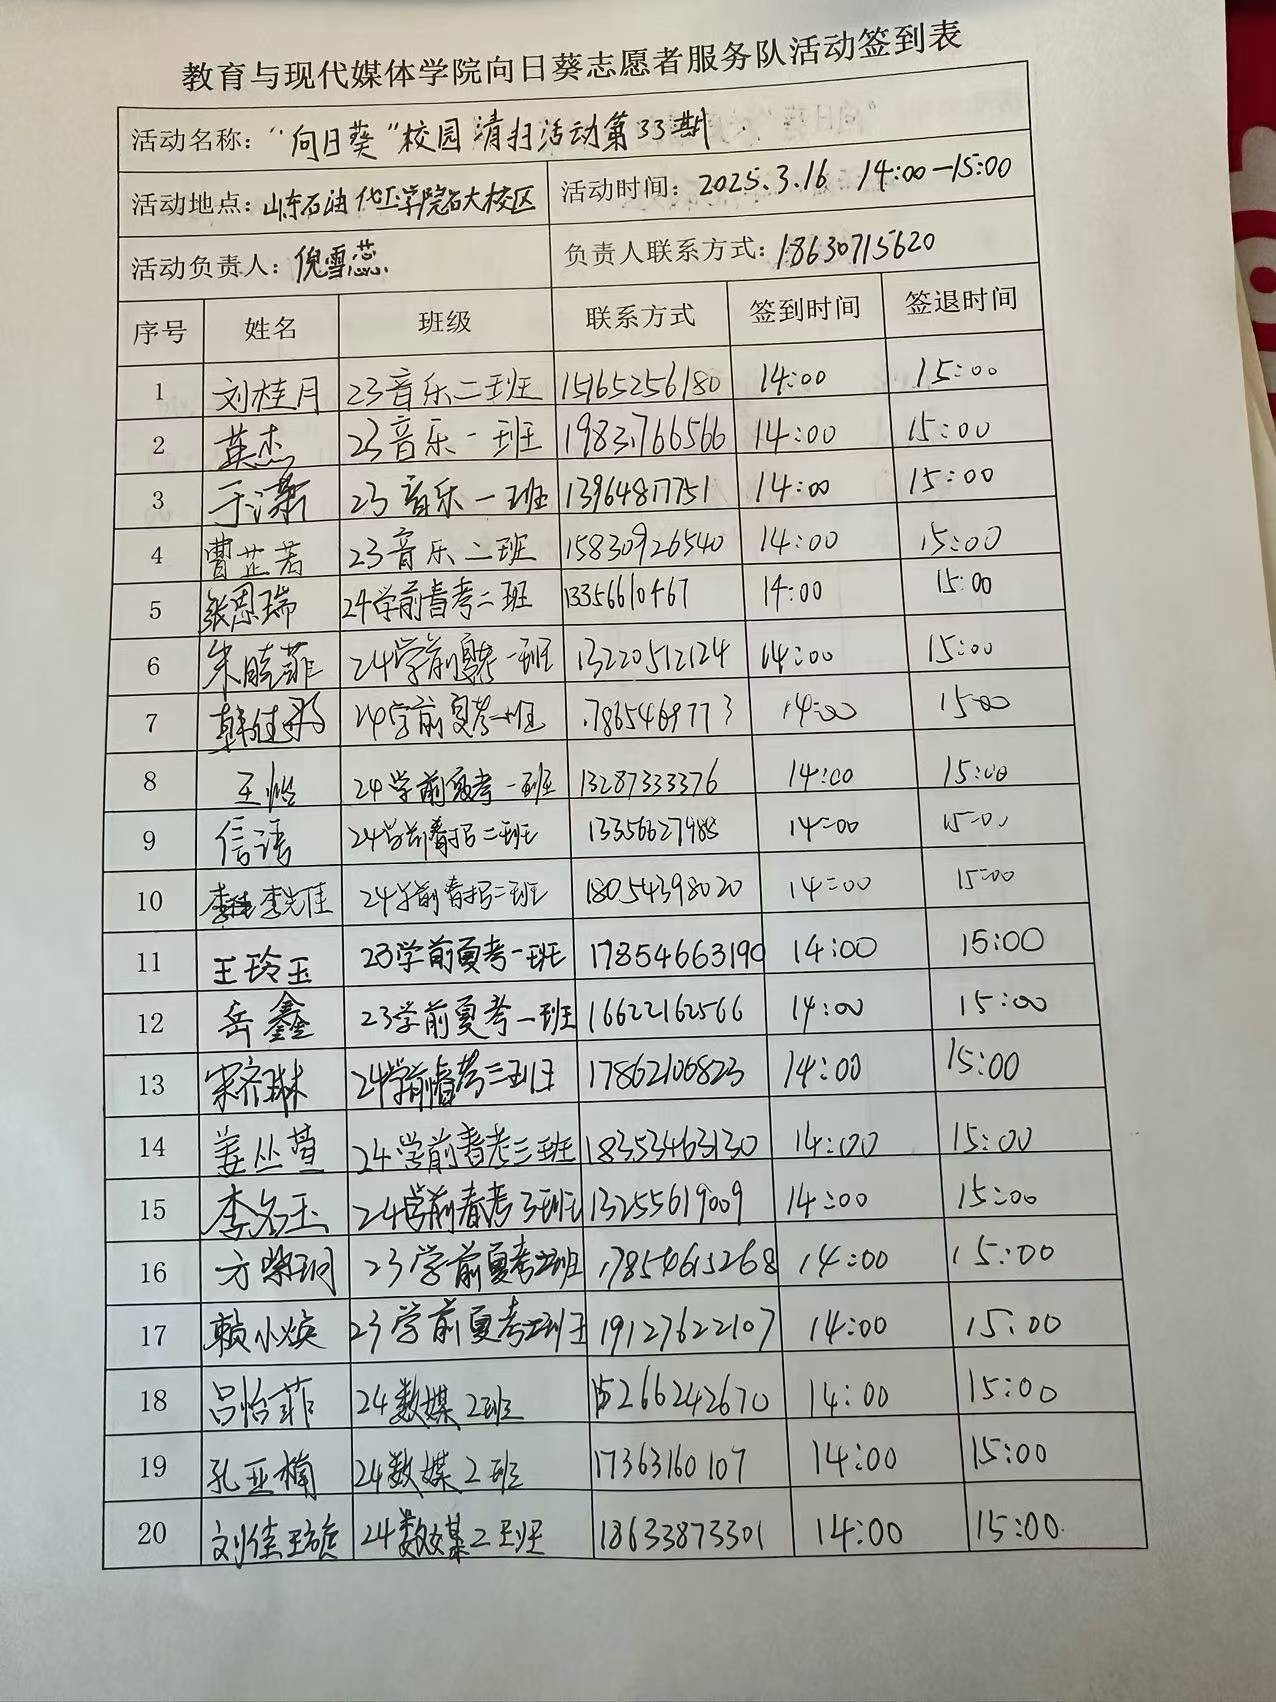 教育与现代媒体学院向日葵志愿者服务队活动签到表
活动名称：“向日葵”校园清扫活动第33期
活动地点：山东石油化工学院石大校区 活动时间：2025.3.16 14:00—15:00
活动负责人：倪雪蕊 负责人联系方式：18630715620
序号 姓名 班级 联系方式 签到时间 签退时间
1 刘桂月 23音乐二班 15165256180 14:00 15:00
2 英杰 23音乐一班 1983.766566 14:00 15:00
3 于潇 23音乐一班 13964817751 14:00 15:00
4 曹芷若 23音乐二班 15830926540 14:00 15:00
5 张恩瑞 24学前春考二班 13356610467 14:00 15:00
6 朱晓菲 24学前夏考一班 13220512124 14:00 15:00
7 韩佳 24学前夏考一班 14:00 15:00
8 王 24学前夏考一班 13287333376 14:00 15:00
9 信语 24学前春招二班 13356627488 14:00 15:00
10 李光佳 24学前春招二班 18054398020 14:00 15:00
11 王玲玉 23学前夏考一班 17854663190 14:00 15:00
12 岳鑫 23学前夏考一班 16622162566 14:00 15:00
13 宋齐琳 24学前春考三班 17862106823 14:00 15:00
14 姜丛萱 24学前春考三班 18353463130 14:00 15:00
15 李名玉 24学前春考3班 13255619009 14:00 15:00
16 方 23学前夏考二班 17854615268 14:00 15:00
17 赖小焕 23学前夏考二班 19127622107 14:00 15:00
18 吕怡菲 24数媒2班 15266242670 14:00 15:00
19 孔亚楠 24数媒2班 17363160107 14:00 15:00
20 刘佳璇 24数媒2班 18633873301 14:00 15:00